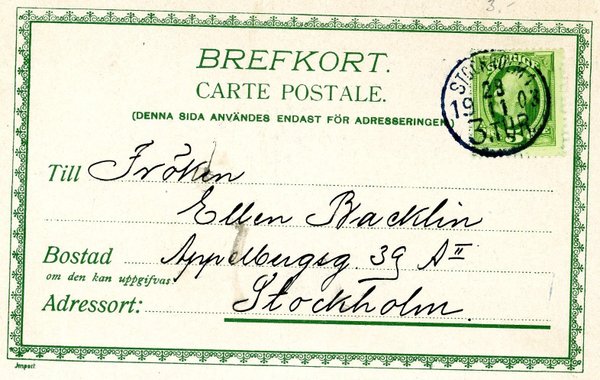 3.-
BREFKORT.
CARTE POSTALE.
(DENNA SIDA ANVÄNDES ENDAST FÖR ADRESSERINGEN
STOCKHOLM 1
23
19 11 03
3 TUR
Till Fröken
Ellen Backlin
Bostad Appelbergsg. 39 A II
om den kan uppgifvas
Adressort: Stockholm.
Jmport